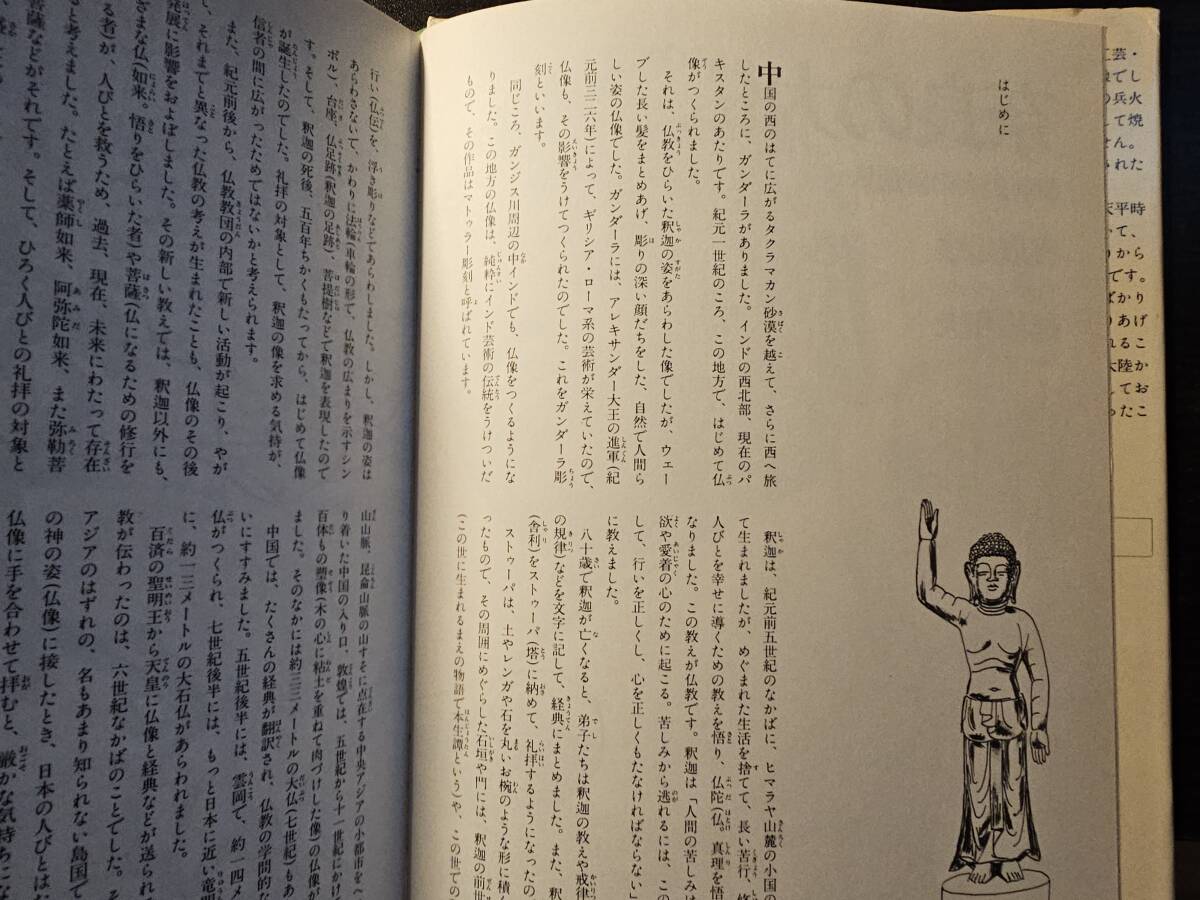 はじめに
中国の西のはてに広がるタクラマカン砂漠を越えて、さらに西へ旅
したところに、ガンダーラがありました。インドの西北部、現在のパ
キスタンのあたりです。紀元一世紀のころ、この地方で、はじめて仏
像がつくられました。
それは、仏教をひらいた釈迦の姿をあらわした像でしたが、ウェー
ブした長い髪をまとめあげ、彫りの深い顔だちをした、自然で人間ら
しい姿の仏像でした。ガンダーラには、アレキサンダー大王の進軍(紀
元前三二六年)によって、ギリシア・ローマ系の芸術が栄えていたので、
仏像も、その影響をうけてつくられたのでした。これをガンダーラ彫
刻といいます。
同じころ、ガンジス川周辺の中インドでも、仏像をつくるようにな
りました。この地方の仏像は、純粋にインド芸術の伝統をうけついだ
もので、その作品はマトゥラー彫刻と呼ばれています。
釈迦は、紀元前五世紀のなかばに、ヒマラヤ山麓の小国の
て生まれましたが、めぐまれた生活を捨てて、長い苦行、修
人びとを幸せに導くための教えを悟り、仏陀(仏。真理を悟
なりました。この教えが仏教です。釈迦は「人間の苦しみは
欲や愛着の心のために起こる。苦しみから逃れるには、この
して、行いを正しくし、心を正しくもたなければならない」
に教えました。
八十歳で釈迦が亡くなると、弟子たちは釈迦の教えや戒律
の規律)などを文字に記して、経典にまとめました。また、釈
(舎利)をストゥーパ(塔)に納めて、礼拝するようになったの
ストゥーパは、土やレンガや石を丸いお椀のような形に積
ったもので、その周囲にめぐらした石垣や門には、釈迦の前世
(この世に生まれるまえの物語で本生譚という)や、この世での
行い(仏伝)を、浮き彫りなどであらわしました。しかし、釈迦の姿は
あらわさないで、かわりに法輪(車輪の形で、仏教の広まりを示すシン
ボル)、台座、仏足跡(釈迦の足跡)、菩提樹などで釈迦を表現したので
す。そして、釈迦の死後、五百年ちかくもたってから、はじめて仏像
が誕生したのでした。礼拝の対象として、釈迦の像を求める気持が、
信者の間に広がったためではないかと考えられます。
また、紀元前後から、仏教教団の内部で新しい活動が起こり、やが
て、それまでと異なった仏教の考えが生まれたことも、仏像のその後
発展に影響をおよぼしました。その新しい教えでは、釈迦以外にも、
ざまな仏(如来。悟りをひらいた者)や菩薩(仏になるための修行を
る者)が、人びとを救うため、過去、現在、未来にわたって存在
ると考えました。たとえば薬師如来、阿弥陀如来、また弥勒菩
菩薩などがそれです。そして、ひろく人びとの礼拝の対象と
山山脈、昆侖山脈の山すそに点在する中央アジアの小都市をへ
り着いた中国の入り口、敦煌では、五世紀から十一世紀にかけ
百体もの塑像(木の心に粘土を重ねて肉づけした像)の仏像が
ました。そのなかには約三三メートルの大仏(七世紀)もあ
中国では、たくさんの経典が翻訳され、仏教の学問的な
いにすすみました。五世紀後半には、雲岡で、約一四メ
仏がつくられ、七世紀後半には、もっと日本に近い竜門
に、約一三メートルの大石仏があらわれました。
百済の聖明王から天皇に仏像と経典などが送られ
教が伝わったのは、六世紀なかばのことでした。そ
アジアのはずれの、名もあまり知られない島国で
の神の姿(仏像)に接したとき、日本の人びとは
仏像に手を合わせて拝むと、厳かな気持ちにな
工芸・
でし
の兵火
して焼
せん。
れた
天平時
いて、
りから
です。
ばかり
あげ
れるこ
大陸か
てお
ったこ